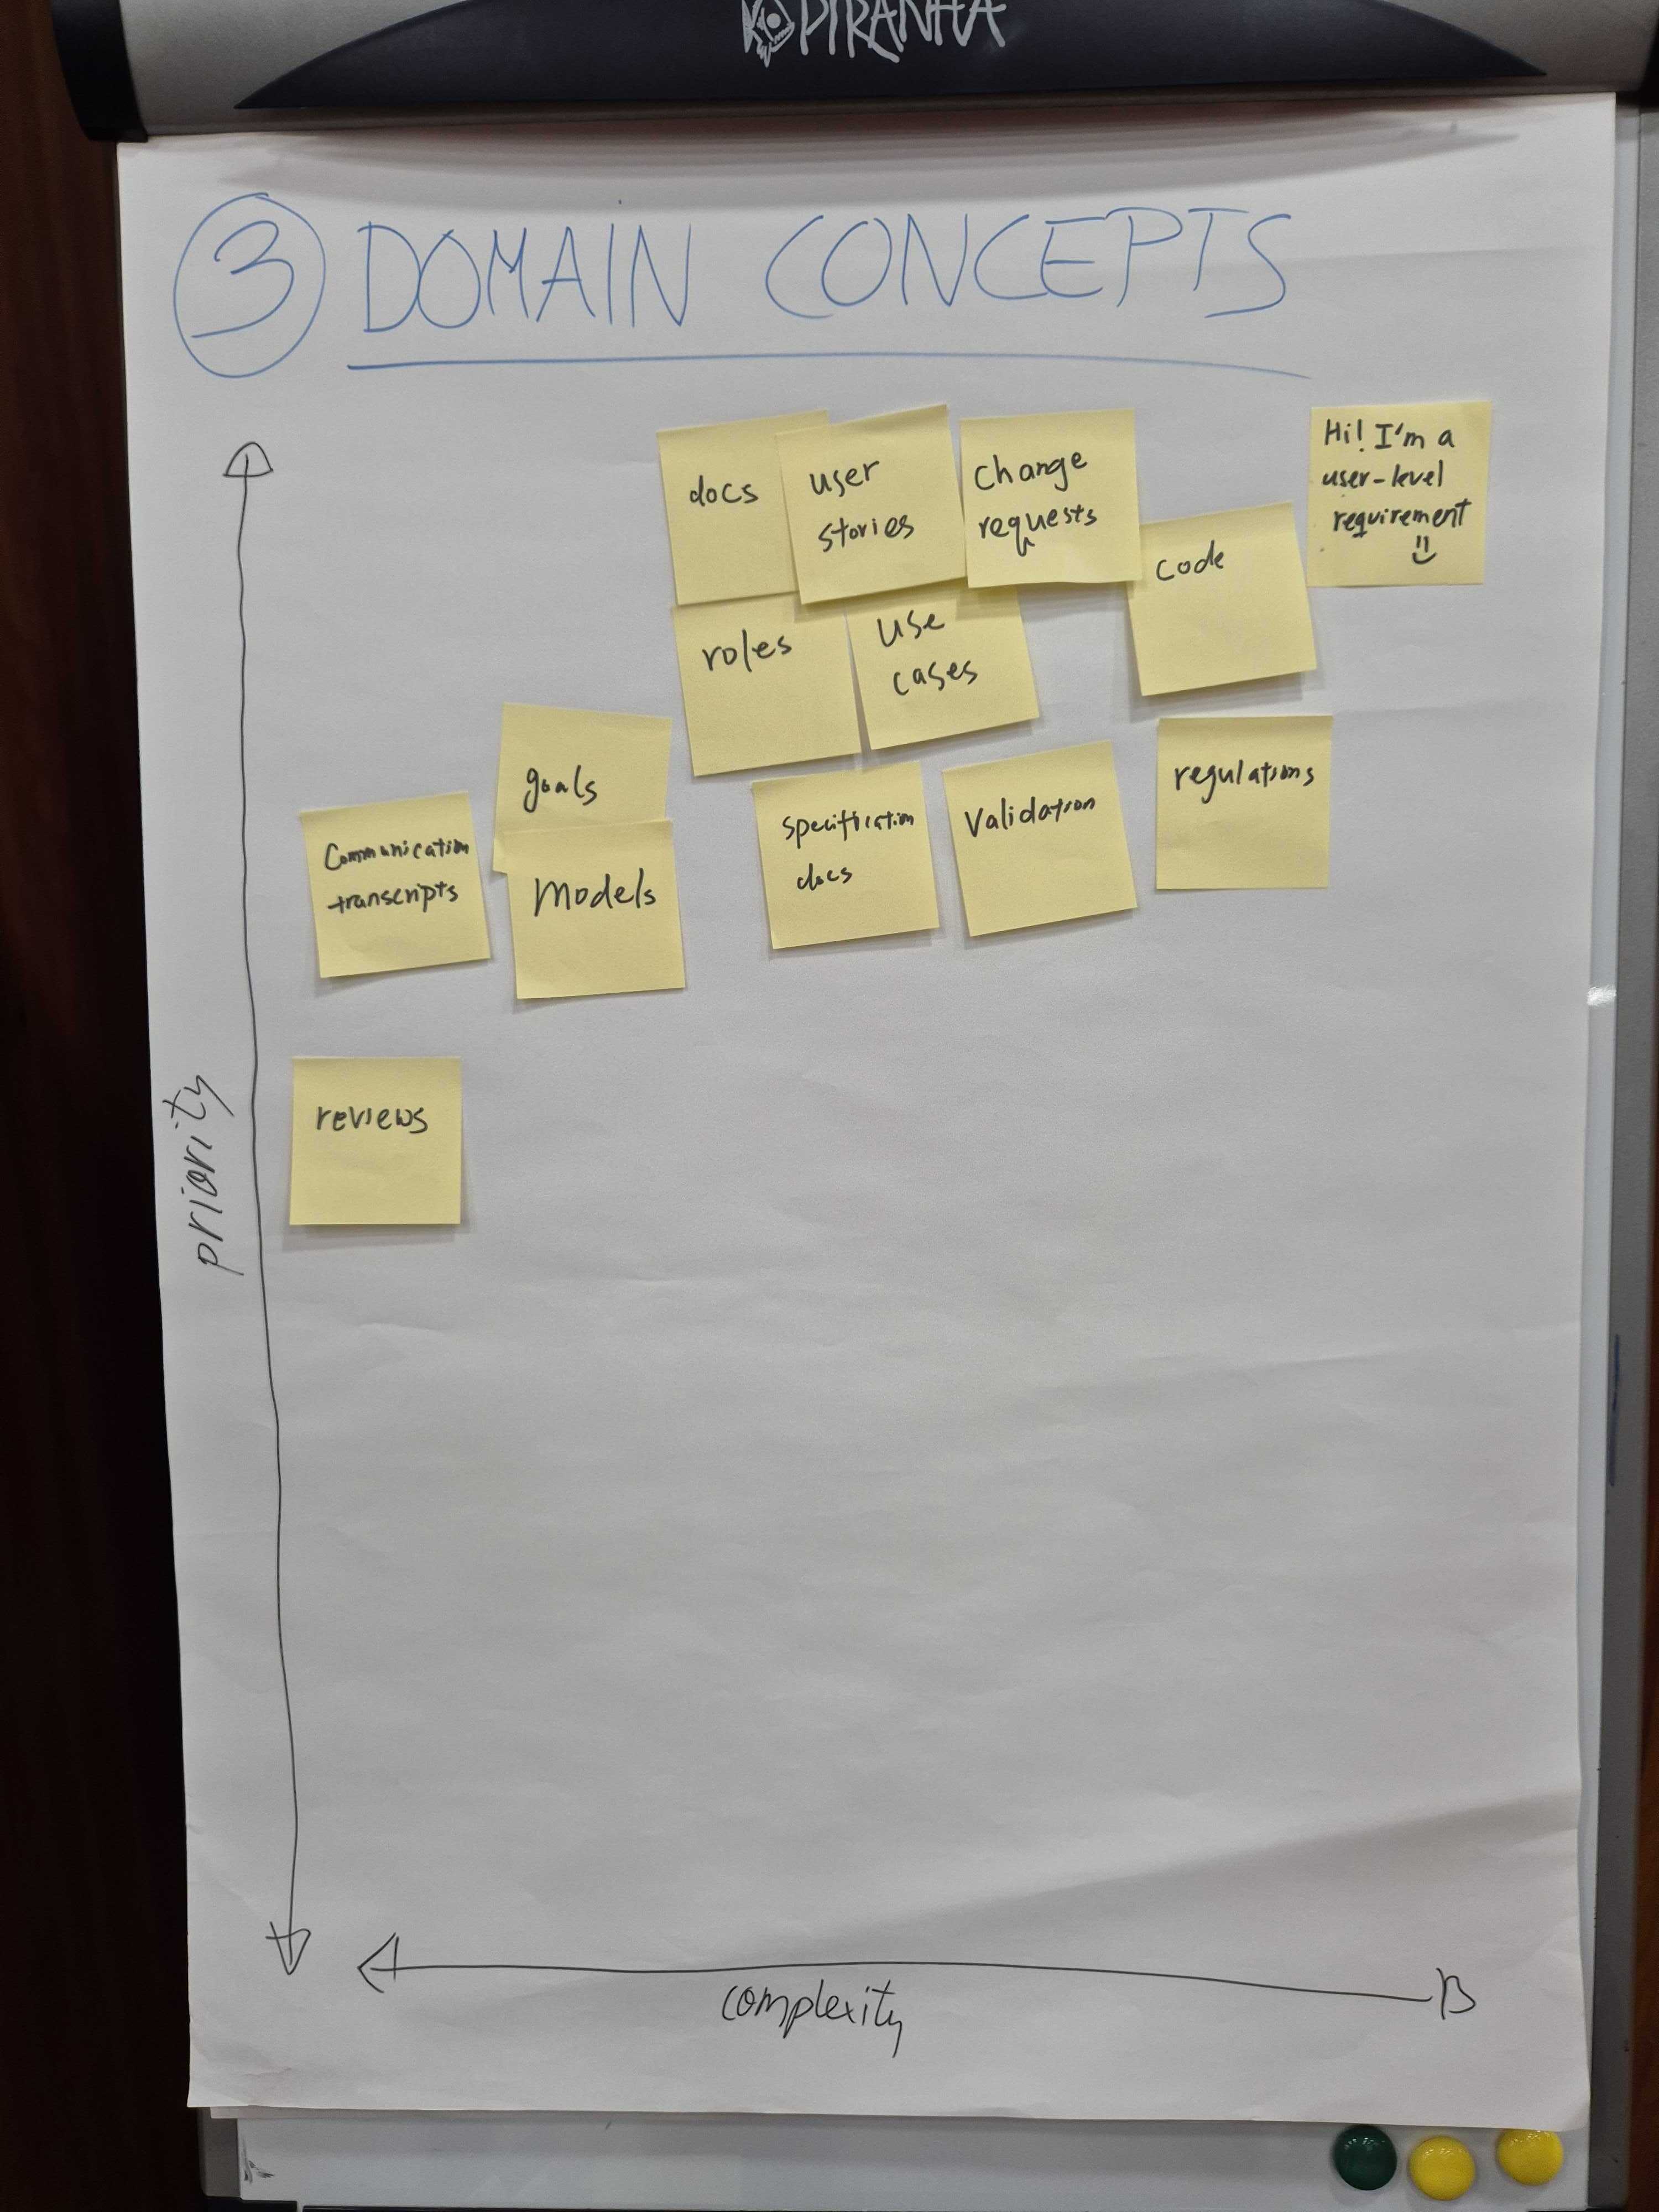 PIRANHA
3 DOMAIN CONCEPTS
docs
user
stories
Change
requests
Hi! I'm a
user-level
requirement
code
roles
use
cases
goals
Models
Communication
transcripts
specification
docs
Validation
regulations
reviews
priority
complexity